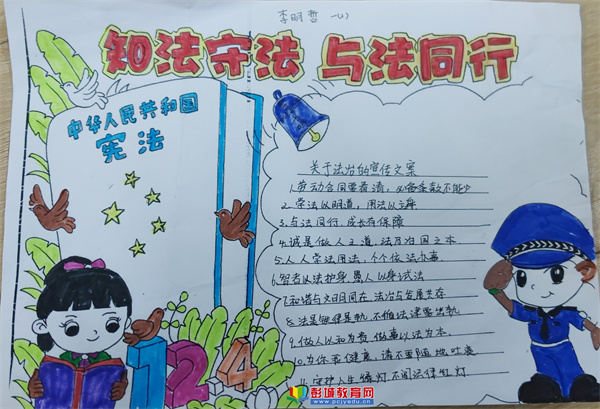 李明哲 一(1)
知法守法 与法同行
中华人民共和国
宪法
关于法治的宣传文案
1.劳动合同要看清,必备条款不能少
2.学法以明道,用法以立身
3.与法同行,成长有保障
4.诚是做人之道,法乃治国之本
5.人人学法用法,个个依法办事
6.智者以法护身,愚人以身试法
7.和谐与文明同在,法治与发展共存
8.法是
9.做人以和为贵,做事以法为本
10.为你我健康,请不要随地吐痰
11.守护人生绿灯不闯法律红灯
12.4
彭城教育网
www.pcjyedu.cn